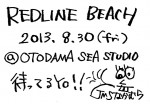 REDLINE BEACH
2013. 8.30 (fri)
@ OTODAMA SEA STUDIO
待ってるYO!!